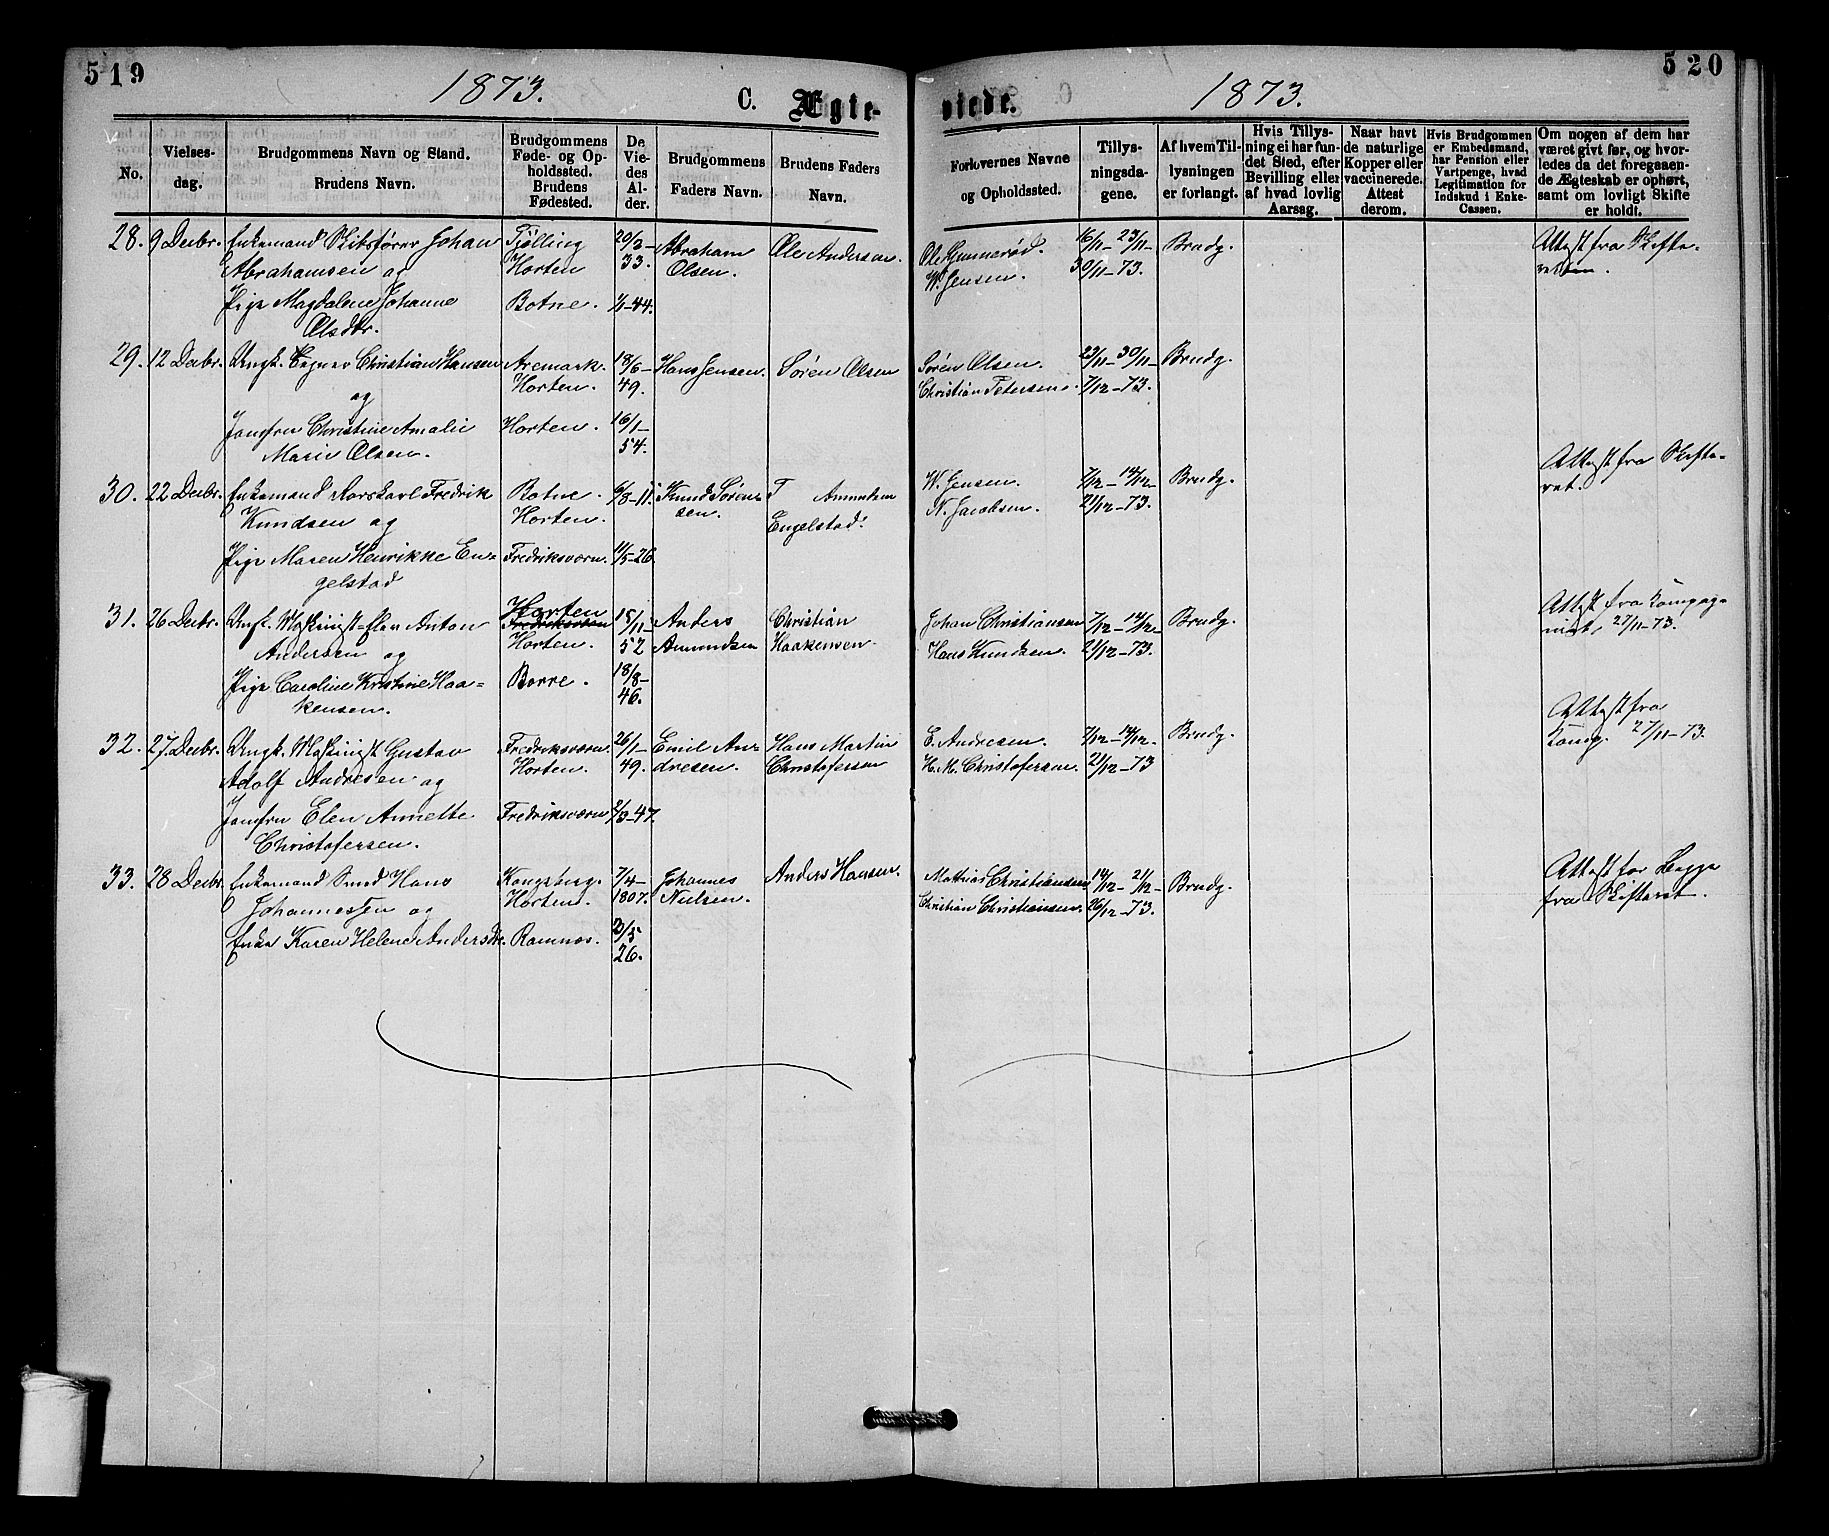 519
1873.
C. Ægte-
viede.
1873.
520
No.
Vielses-
dag.
Brudgommens Navn og Stand.
Brudens Navn.
Brudgommens
Føde- og Op-
holdssted.
Brudens
Fødested.
De
Vie-
des
Al-
der.
Brudgommens
Faders Navn.
Brudens Faders
Navn.
Forlovernes Navne
og Opholdssted.
Tillys-
ningsda-
gene.
Af hvem Til-
lysningen
er forlangt.
Hvis Tillys-
ning ei har fun-
det Sted, efter
Bevilling eller
af hvad lovlig
Aarsag.
Naar havt
de naturlige
Kopper eller
vaccinerede.
Attest
derom.
Hvis Brudgommen
er Embedsmand,
har Pension eller
Vartpenge, hvad
Legitimation for
Indskud i Enke-
Cassen.
Om nogen af dem har
været givt før, og hvor-
ledes da det foregaaen-
de Ægteskab er ophørt,
samt om lovligt Skifte
er holdt.
28. 9 Decbr. Enkemand Skibsfører Johan
Abrahamsen og
Pige Magdalene Johanne
Olsdtr.
Tjølling
Horten
Botne.
20/3-
33.
1/1-44.
Abraham
Olsen.
Ole Andersen.
Ole Gunnerød.
W. Jensen.
16/11- 23/11-
30/11-73.
Brudg.
Attest fra Skifte-
retten.
29. 12 Decbr. Ungk. Christian Hansen
og
Jomfru Christine Amalie
Marie Olsen.
Aremark.
Horten.
Horten.
18/6-
49.
16/1-
54.
Hans Jensen.
Søren Olsen
Søren Olsen.
Christian Petersen.
23/11-30/11-
7/12-73.
Brudg.
30. 22 Decbr. Enkemand Fredrik
Knudsen og
Pige Maren Henrikke En-
gelstad
Botne.
Horten.
Fredriksværn.
6/8-11.
11/5-26.
Knud Søren-
sen.
T Amundsen
Engelstad.
W. Jensen.
N. Jacobsen.
7/12-14/12-
21/12-73.
Brudg.
Attest fra Skifte-
ret.
31. 26 Decbr. Ungk. Maskinist-Elev Anton
Andersen og
Pige Caroline Kristine Haa-
kensen.
Horten
Fredriksværn
Horten.
Borre.
18/11-
52
18/8-
46.
Anders
Amundsen
Christian
Haakensen.
Johan Christiansen
Hans Knudsen.
7/12-14/12-
21/12-73.
Brudg.
Attest fra Kompag-
niet 27/11-73.
32. 27 Decbr. Ungk. Maskinist Gustav
Adolf Andresen og
Jomfru Elen Annette
Christofersen.
Fredriksværn.
Horten.
Fredriksværn
26/1-
49.
2/3-47.
Emil An-
dresen.
Hans Martin
Christofersen
E. Andresen.
H. M. Christofersen.
7/12-14/12-
21/12-73
Brudg.
Attest fra
Komp. 27/11-73.
33. 28 Decbr. Enkemand Smed Hans
Johannessen og
Enke Karen Helene Andersdtr.
Kongsberg.
Horten.
Ramnes.
7/4-
1807.
2/5
26.
Johannes
Nielsen.
Anders Hansen.
Mathias Christiansen
Christian Christiansen.
14/12- 21/12-
26/12-73.
Brudg.
Attest for Begge
fra Skifteret.